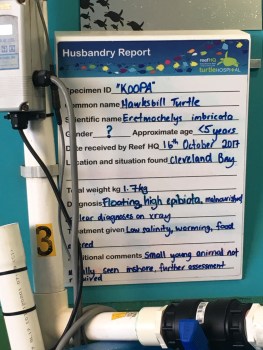 Husbandry Report
reef HQ
turtle HOSPITAL
Specimen ID "KOOPA"
Common name Hawksbill Turtle
Scientific name Eretmochelys imbricata
Gender ? Approximate age <5 years
Date received by Reef HQ 16th October 2017
Location and situation found Cleveland Bay
Total weight kg 1.7kg
Diagnosis Floating, high epibiota, malnourished
clear diagnoses on xray
Treatment given Low salinity, warming, food
Additional comments Small young animal not
usually seen inshore, further assessment
required
3